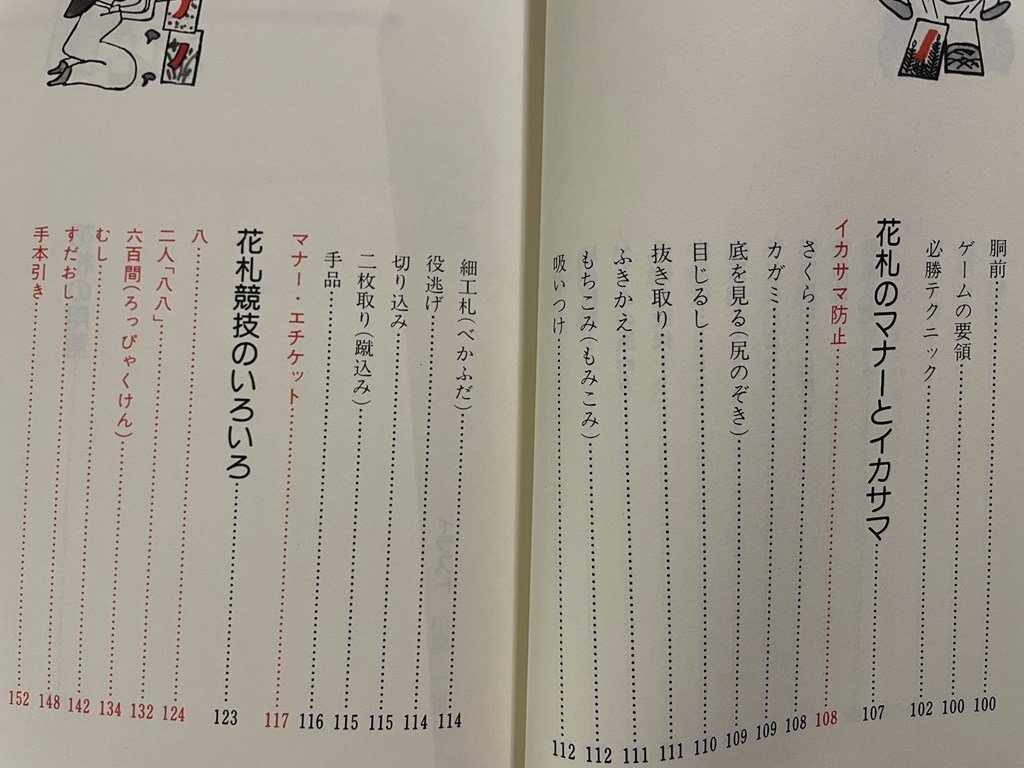 胴前……100
ゲームの要領……100
必勝テクニック……102
花札のマナーとイカサマ……107
イカサマ防止……108
さくら……108
カガミ……109
底を見る(尻のぞき)……109
目じるし……110
抜き取り……111
ふきかえ……111
もちこみ(もみこみ)……112
吸いつけ……112
細工札(べかふだ)……114
役逃げ……114
切り込み……115
二枚取り(蹴込み)……115
手品……116
マナー・エチケット……117
花札競技のいろいろ……123
八……124
二人「八八」……132
六百間(ろっぴゃくけん)……134
むし……142
すだおし……148
手本引き……152